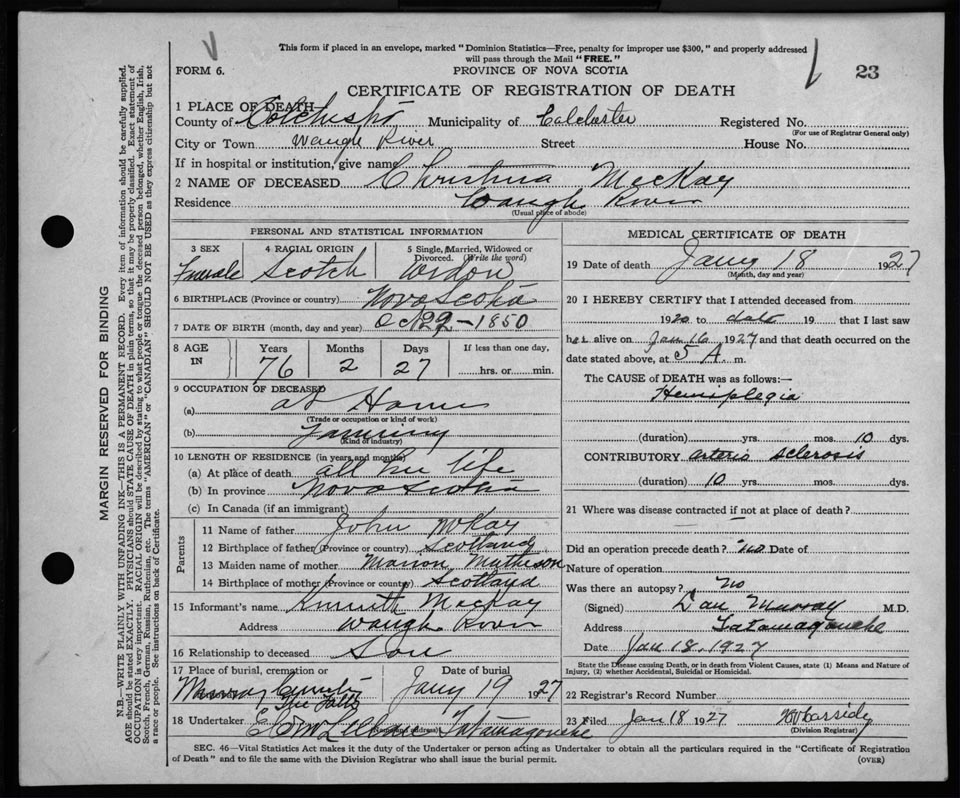 This form if placed in an envelope, marked "Dominion Statistics—Free, penalty for improper use $300," and properly addressed
will pass through the Mail "FREE."
FORM 6.
PROVINCE OF NOVA SCOTIA
23
CERTIFICATE OF REGISTRATION OF DEATH
1 PLACE OF DEATH—
County of Colchester Municipality of Colchester Registered No.
(For use of Registrar General only)
City or Town Waugh River Street House No.
If in hospital or institution, give name
2 NAME OF DECEASED Christina McKay
Residence Waugh River
(Usual place of abode)
PERSONAL AND STATISTICAL INFORMATION
3 SEX 4 RACIAL ORIGIN 5 Single, Married, Widowed or
Divorced. (Write the word)
Female Scotch Widow
6 BIRTHPLACE (Province or country) Nova Scotia
7 DATE OF BIRTH (month, day and year) Oct 22 - 1850
8 AGE IN Years Months Days If less than one day,
76 2 27 hrs. or min.
9 OCCUPATION OF DECEASED
(a) at Home
(Trade or occupation or kind of work)
(b) Farming
(Kind of industry)
10 LENGTH OF RESIDENCE (in years and months)
(a) At place of death all her life
(b) In province Nova Scotia
(c) In Canada (if an immigrant)
Parents
11 Name of father John McKay
12 Birthplace of father (Province or country) Scotland
13 Maiden name of mother Marion Matheson
14 Birthplace of mother (Province or country) Scotland
15 Informant's name Kenneth Mackay
Address Waugh River
16 Relationship to deceased Son
17 Place of burial, cremation or Date of burial
The Falls Jany 19 1927
18 Undertaker Tatamagouche
(Name and address)
MEDICAL CERTIFICATE OF DEATH
19 Date of death Jany 18 1927
(Month, day and year)
20 I HEREBY CERTIFY that I attended deceased from
1920 to date 19 that I last saw
her alive on Jan 16 1927 and that death occurred on the
date stated above, at 5 A. m.
The CAUSE of DEATH was as follows:—
Hemiplegia
(duration) yrs. mos. 10 dys.
CONTRIBUTORY arterio sclerosis
(duration) 10 yrs. mos. dys.
21 Where was disease contracted if not at place of death?
Did an operation precede death? no Date of
Nature of operation
Was there an autopsy? No
(Signed) Dan Murray M.D.
Address Tatamagouche
Date Jan 18. 1927
State the Disease causing Death, or in death from Violent Causes, state (1) Means and Nature of
Injury, (2) whether Accidental, Suicidal or Homicidal.
22 Registrar's Record Number
23 Filed Jan 18 1927 Cassidy
(Division Registrar)
SEC. 46—Vital Statistics Act makes it the duty of the Undertaker or person acting as Undertaker to obtain all the particulars required in the "Certificate of Registration
of Death" and to file the same with the Division Registrar who shall issue the burial permit.
(OVER)
MARGIN RESERVED FOR BINDING
N.B.—WRITE PLAINLY WITH UNFADING INK—THIS IS A PERMANENT RECORD. Every item of information should be carefully supplied.
AGE should be stated EXACTLY. PHYSICIANS should STATE CAUSE OF DEATH in plain terms, so that it may be properly classified. Exact statement of
OCCUPATION is very important. RACIAL ORIGIN will be described by stating to what people or tongue the deceased person belonged, whether English, Irish,
Scotch, French, German, Russian, Ruthenian, etc. The terms "AMERICAN" or "CANADIAN" SHOULD NOT BE USED as they express citizenship but not
a race or people. See instructions on back of Certificate.